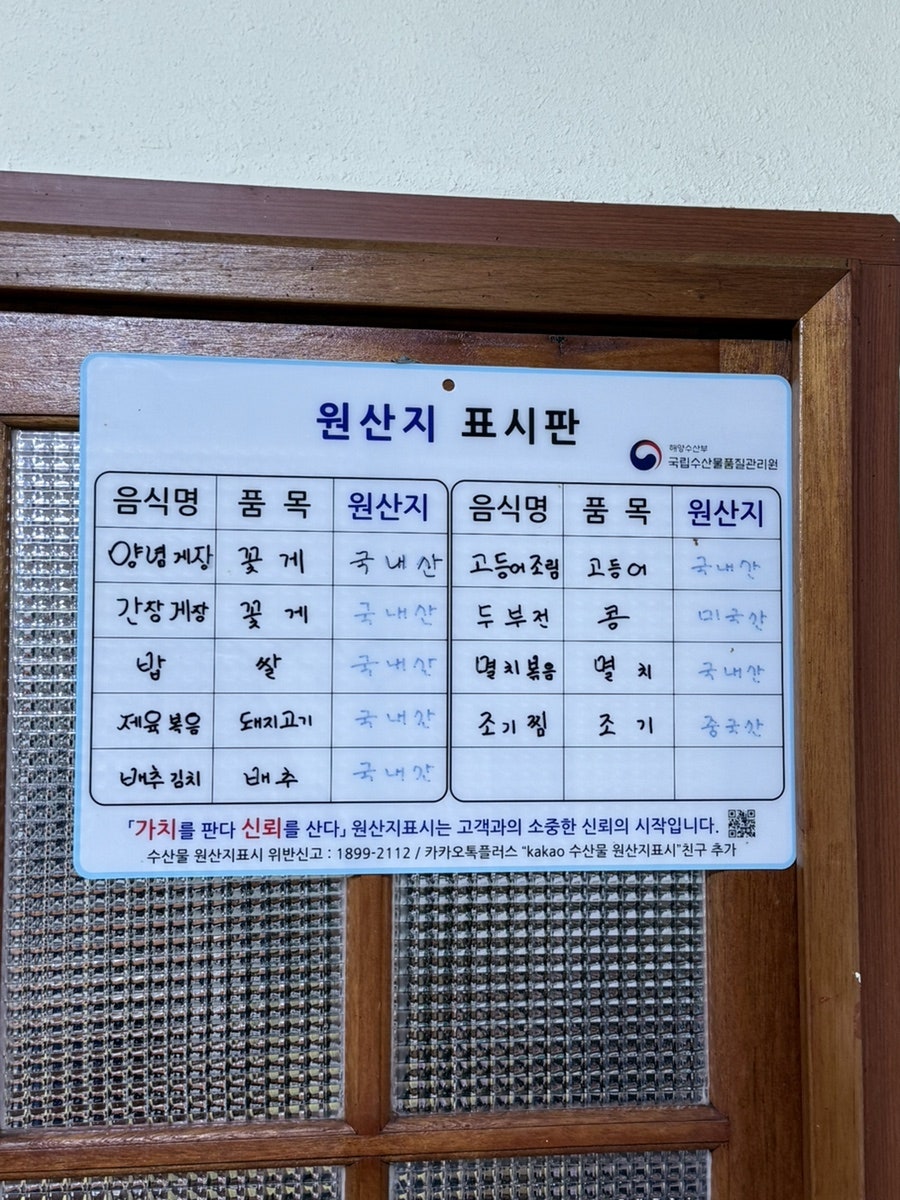 원산지 표시판
해양수산부
국립수산물품질관리원
음식명 품 목 원산지
양념게장 꽃 게 국내산
간장게장 꽃 게 국내산
밥 쌀 국내산
제육볶음 돼지고기 국내산
배추김치 배추 국내산
음식명 품 목 원산지
고등어조림 고등어 국내산
두부전 콩 미국산
멸치볶음 멸 치 국내산
조기찜 조 기 중국산
「가치를 판다 신뢰를 산다」 원산지표시는 고객과의 소중한 신뢰의 시작입니다.
수산물 원산지표시 위반신고 : 1899-2112 / 카카오톡플러스 "kakao 수산물 원산지표시"친구 추가